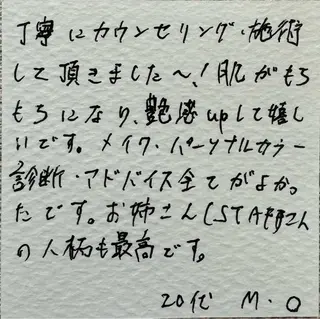 丁寧にカウンセリング・施術
して頂きました〜!肌がもち
もちになり、艶感upして嬉し
いです。メイク・パーソナルカラー
診断・アドバイス全てがよかっ
たです。お姉さん(STAFFさん
の人柄も最高です。
20代 M・O